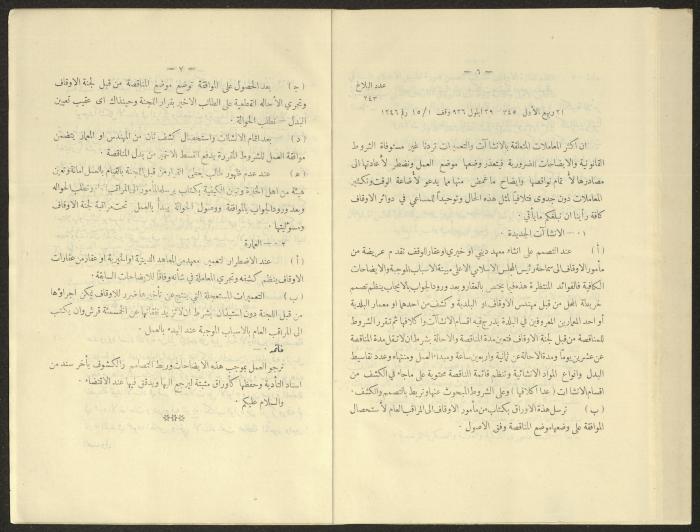 — ٦ —
عدد البلاغ
٢٤٣
٢١ ربيع الأول ٣٤٥ ٢٩ ايلول ٩٢٦ وقف ١٥/١ رقم ١٢٤٦
ان اكثر المعاملات المتعلقة بالانشاآت والتعميرات تردنا غير مستوفاة الشروط
القانونية والايضاحات الضرورية فيتعذر وضعها موضع العمل ونضطر لأعادتها الى
مصادرها لأتمام نواقصها وايضاح ما غمض منها مما يدعو لأضاعة الوقت وتكثير
المعاملات دون جدوى فتلافياً لمثل هذه الحال وتوحيداً للمساعي في دوائر الاوقاف
كافة رأينا ان نبلغكم ما يأتي .
١ — الانشاآت الجديدة .
(أ) عند التصميم على انشاء معهد ديني او خيري او عقار لوقف تقدم عريضة من
مأمور الاوقاف الى سماحة رئيس المجلس الاسلامي الاعلى مبينة الاسباب الموجبة والايضاحات
الكافية فالفوائد المنتظرة هذه فيما يختص بالعقار وبعد ورود الجواب بالايجاب ينظم تصميم
خريطة للمحل من قبل مهندس الاوقاف او البلدية وكشف من احدهما او معمار البلدية
أو احد المعمارين المعروفين في البلدة يدرج فيه اقسام الانشاآت واكلافها ثم تقرر الشروط
للمناقصة من قبل لجنة الاوقاف فتعين مدة المناقصة والاحالة بشرط ان لا تقل مدة المناقصة
عن عشرين يوماً ومدة الاحالة عن ثمانية واربعين ساعة ومبدأ العمل ومنتهاه وعدد تقاسيط
البدل وانواع المواد الانشائية وتنظم قائمة المناقصة محتوية على ما جاء في الكشف من
اقسام الانشاآت (عدا اكلافها) وعلى الشروط المبحوث عنها وتربط بالتصميم والكشف.
(ب) ترسل هذه الاوراق بكتاب من مأمور الاوقاف الى المراقب العام لأستحصال
الموافقة على وضعها موضع المناقصة وفق الاصول .
— ٧ —
(ج) بعد الحصول على الموافقة توضع موضع المناقصة من قبل لجنة الاوقاف
وتجري الأحاله القطعية على الطالب الاخير بقرار اللجنة وحينذاك اى عقيب تعيين
البدل — تطلب الحوالة .
(د) بعد اتمام الانشاآت واستحصال كشف ثان من المهندس او المعمار يتضمن
موافقة العمل للشروط المقررة يدفع القسط الاخير من بدل المناقصة .
(ه) عند عدم ظهور طالب حتى القرار من قبل اللجنة بالقيام بالعمل امانة وتعين
هيئة من اهل الخبرة وتبين الكيفية بكتاب يرسله المأمور الى المراقب العام وتطلب الحواله
وبعد ورود الجواب بالموافقة ووصول الحوالة يبدأ بالعمل تحت مراقبة لجنة الاوقاف
ومسؤليتها .
٢ — العمارة
(أ) عند الاضطرار لتعمير معهد من المعاهد الدينية او الخيرية او عقار من عقارات
الاوقاف ينظم كشفه وتجري المعاملة في شأنه وفاقاً للايضاحات السابقة .
(ب) التعميرات المستعجلة التي ينتج عن تأخيرها ضرر للاوقاف يمكن اجراؤها
من قبل اللجنة دون استيذان بشرط ان لا تزيد نفقاتها عن الخمسمئة قرش وان يكتب
الى المراقب العام بالاسباب الموجبة عند البدء بالعمل .
خاتمه .
نرجو العمل بموجب هذه الايضاحات وربط التصاميم والكشوف بأخر سند من
اسناد التأدية وحفظها كأوراق مثبتة ليرجع اليها ويدقق فيها عند الاقتضاء .
والسلام عليكم .